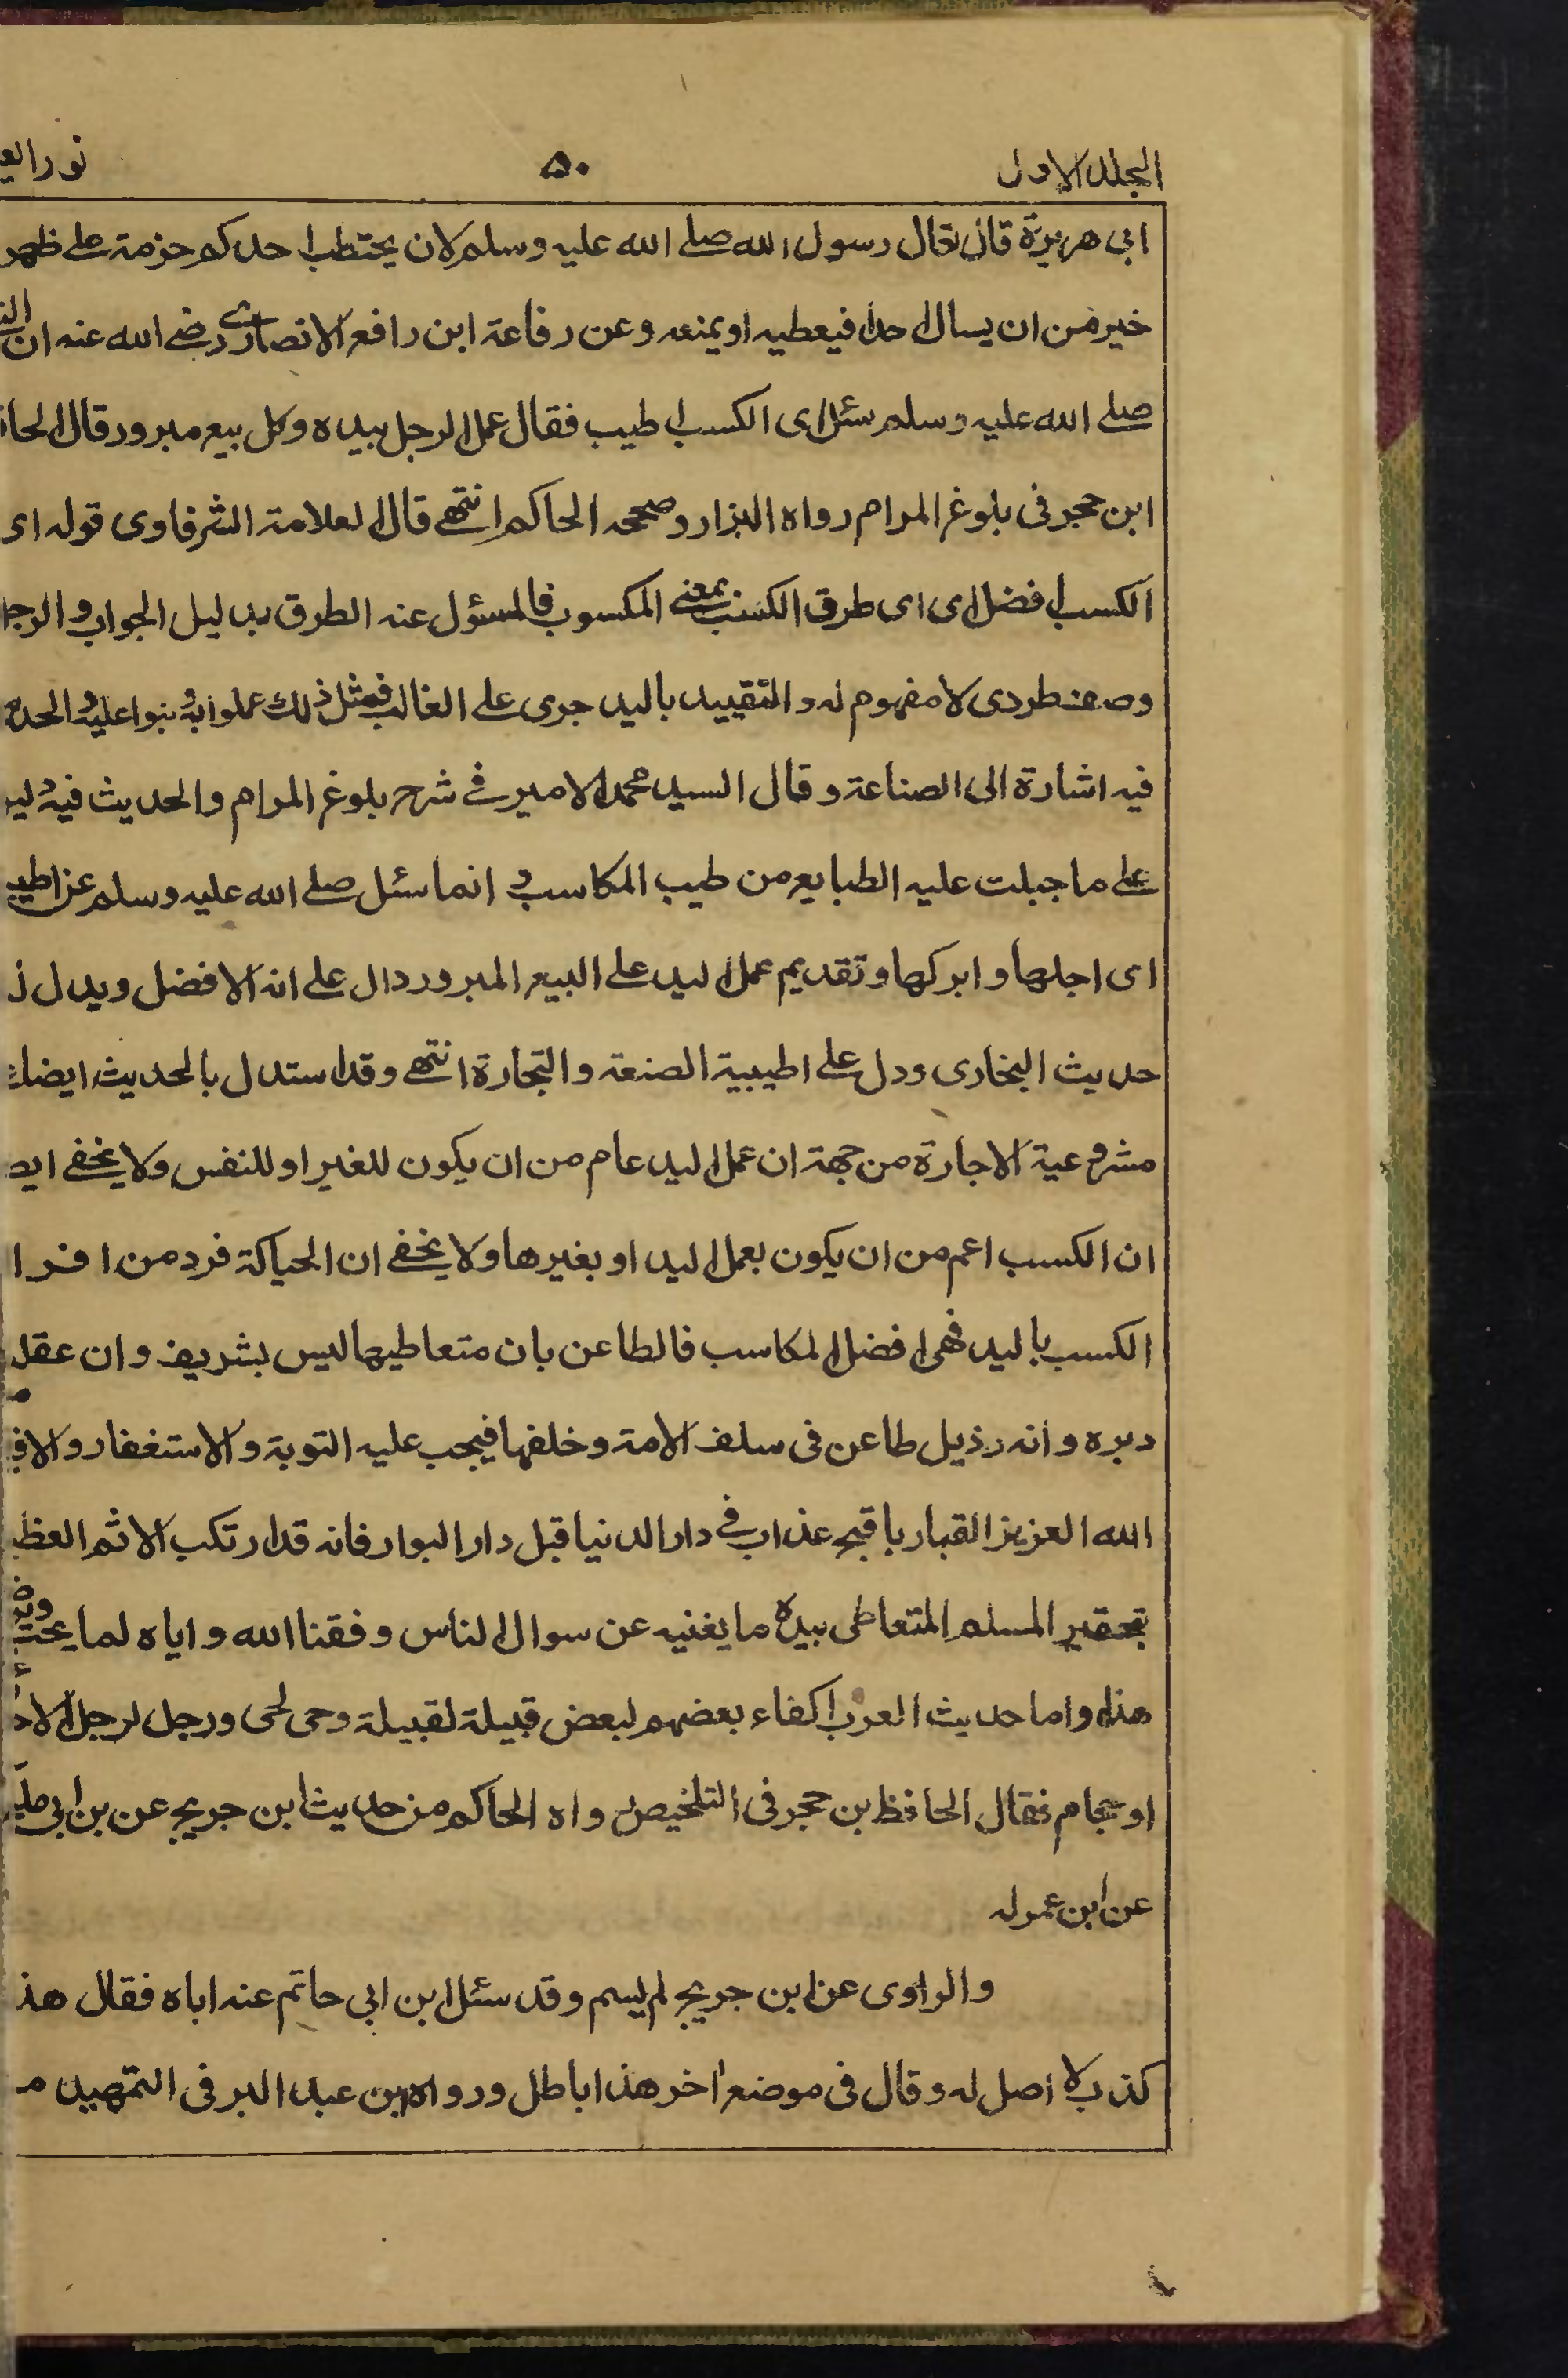 المجلد الاول ٥٠ نور العي
ابى هريرة قال قال رسول الله صلے الله عليه وسلم لان يحتطب احدكم حزمة علے ظهر
خير من ان يسال احدا فيعطيه او يمنعه وعن رفاعة ابن رافع الانصارے رضے الله عنه ان
صلے الله عليه وسلم سئل اى الكسب اطيب فقال عمل الرجل بيده وكل بيع مبرور قال الحا
ابن حجر فى بلوغ المرام رواه البزار وصححه الحاكم انتهے قال العلامة الشرقاوى قوله اى
الكسب افضل اى اى طرق الكسب بمعنے المكسوب فالمسؤل عنه الطرق بدليل الجواب والرجل
وصف طردى لا مفهوم له والتقييد باليد جرى على الغالب فمثل ذلك عملوا به وبنوا عليه والحد
فيه اشارة الى الصناعة وقال السيد محمد الامير فے شرح بلوغ المرام والحديث فيه
علے ما جبلت عليه الطبايع من طيب المكاسب وانما سئل صلے الله عليه وسلم عن اطيب
اى اجلها وابركها وتقديم عمل اليد على البيع المبرور دال على انه الافضل ويدل
حديث البخارى ودل علے اطيبية الصنعة والتجارة انتهے وقد استدل بالحديث ايضا
مشروعية الاجارة من جهة ان عمل اليد عام من ان يكون للغير او للنفس ولا يخفے ايض
ان الكسب اعم من ان يكون بعمل اليد او بغيرها ولا يخفے ان الحياكة فرد من افرا
الكسب باليد فهى افضل المكاسب فالطاعن بان متعاطيها ليس بشريف وان عقل
دبره وانه رذيل طاعن فى سلف الامة وخلفها فيجب عليه التوبة والاستغفار والا
الله العزيز القهار باقبح عذاب فے دار الدنيا قبل دار البوار فانه قد ارتكب الاثم العظ
تحقير المسلم المتعاطى بيده ما يغنيه عن سوال الناس وفقنا الله واياه لما يحب
هذا واما حديث العرب اكفاء بعضهم لبعض قبيلة لقبيلة وحى لحى ورجل لرجل الا
او حجام فقال الحافظ بن حجر فى التلخيص رواه الحاكم من حديث ابن جريج عن بن ابى مليـ
عن ابن عمر له
والراوى عن ابن جريج لم يسم وقد سئل ابن ابى حاتم عنه اباه فقال هذ
كذب لا اصل له وقال فى موضع اخر هذا باطل ورواه ابن عبد البر فى التمهيد م